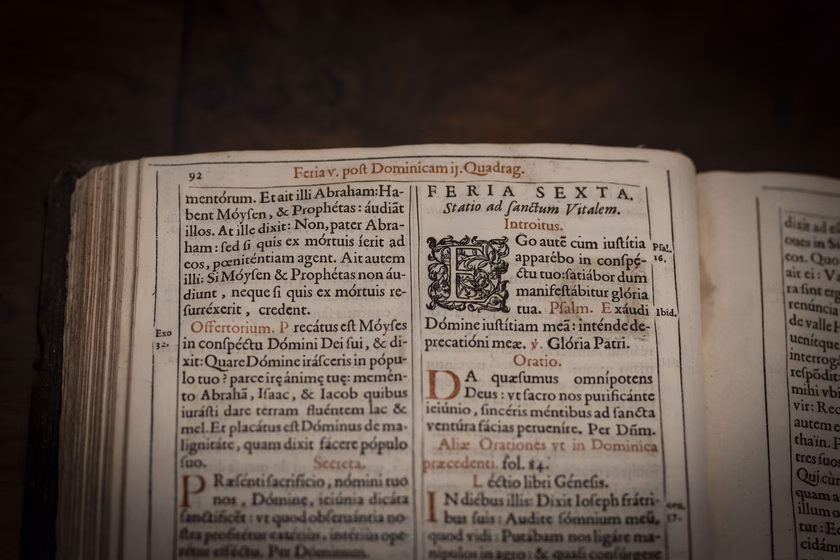 92
Feria v. post Dominicam ij. Quadrag.
mentórum. Et ait illi Abraham: Ha-
bent Móysen, & Prophétas: áudiāt
illos. At ille dixit: Non, pater Abra-
ham: sed si quis ex mórtuis íerit ad
eos, pœniténtiam agent. Ait autem
illi: Si Móysen & Prophétas non áu-
diunt, neque si quis ex mórtuis re-
surréxerit, credent.
Offertorium. Precátus est Móyses
Exo
32.
in conspéctu Dómini Dei sui, & di-
xit: Quare Dómine irásceris in pópu-
lo tuo? parce iræ ánimę tuę: memén-
to Abrahā, Isaac, & Iacob quibus
iurásti dare terram fluéntem lac &
mel. Et placátus est Dóminus de ma-
lignitáte, quam dixit fácere pópulo
suo. Secreta.
PRæsénti sacrificio, nómini tuo
nos, Dómine, ieiúnia dicáta
sanctíficēt: vt quod obseruántia no-
stra profitétur extérius, intérius ope-
rétur efféctu. Per Dóminum.
FERIA SEXTA.
Statio ad sanctum Vitalem.
Introitus.
EGo autē cum iustítia
Psal.
16.
apparébo in conspé-
ctu tuo: satiábor dum
manifestábitur glória
tua. Psalm. Exáudi
Ibid.
Dómine iustítiam meā: inténde de-
precatióni meæ. ℣. Glória Patri.
Oratio.
DA quæsumus omnípotens
Deus: vt sacro nos purificánte
ieiúnio, sincéris méntibus ad sancta
ventúra fácias peruenire. Per Dñm.
Aliæ Orationes vt in Dominica
præcedenti. fol. 84.
Léctio libri Génesis.
IN diébus illis: Dixit Ioseph frátri-
Gen.
37.
bus suis: Audíte sómnium meū,
quod vidi: Putábam nos ligáre ma-
nípulos in agro: & quasi consúrgere
eos. Quo
ait ei: V
ra sint erg
renúncia
de valle H
uenítque
interrog
respōdit:
mihi vbi
vir: Rec
autem e
thaïn. P
tres suos
Qui cùm
quam a
illum o
tur: Ec